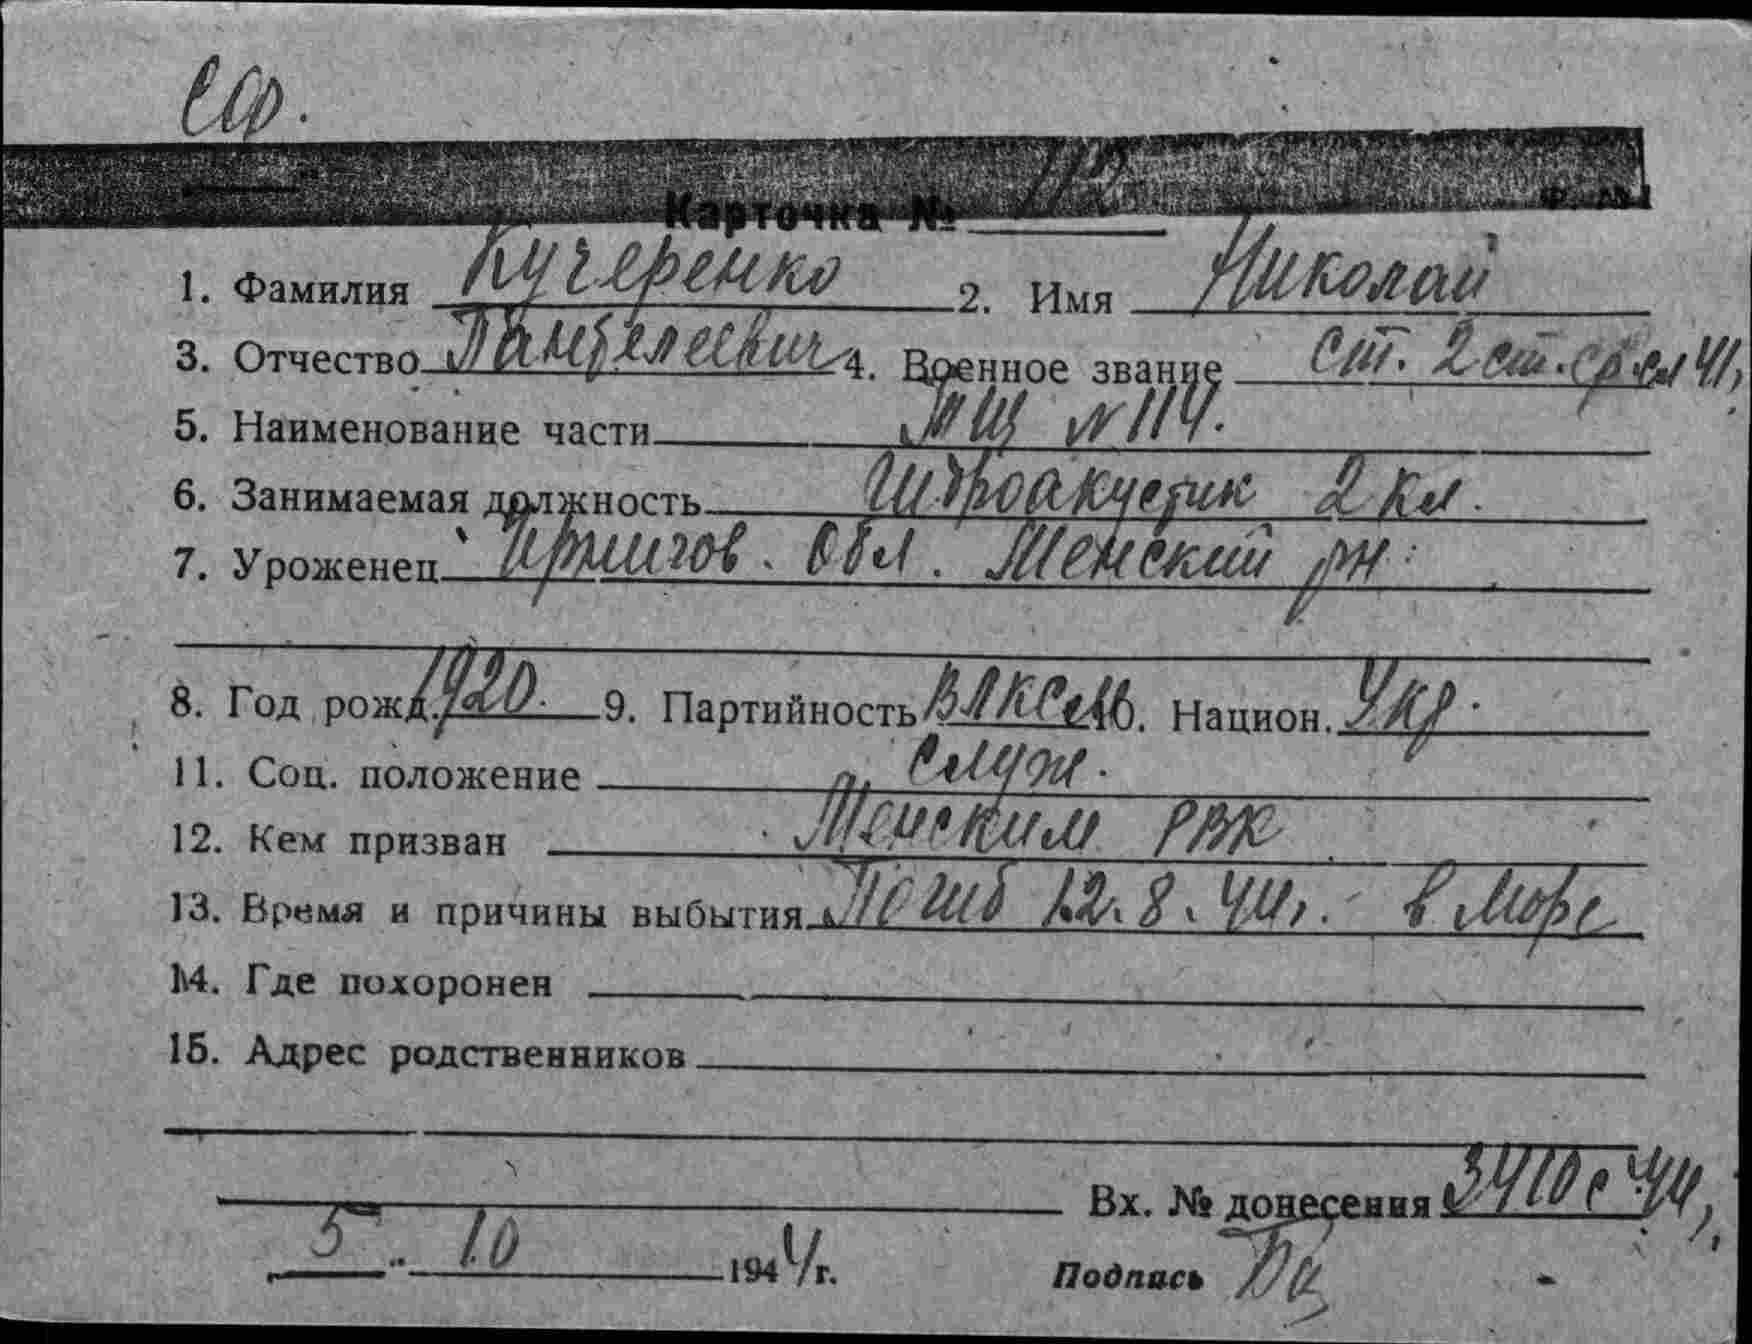 Карточка №
1. Фамилия Кучеренко 2. Имя Николай
3. Отчество Пантелеевич 4. Военное звание ст. 2 ст. ср.сл 41,
5. Наименование части ТЩ № 114.
6. Занимаемая должность Гидроакустик 2 кл.
7. Уроженец Чернигов. Обл. Менский рн.
8. Год рожд. 1920. 9. Партийность ВЛКСМ 10. Национ. Укр.
11. Соц. положение служ.
12. Кем призван Менским РВК
13. Время и причины выбытия Погиб 12.8.44г. в море
14. Где похоронен
15. Адрес родственников
Вх. № донесения 3410с 44,
5 " 10 1944 г. Подпись